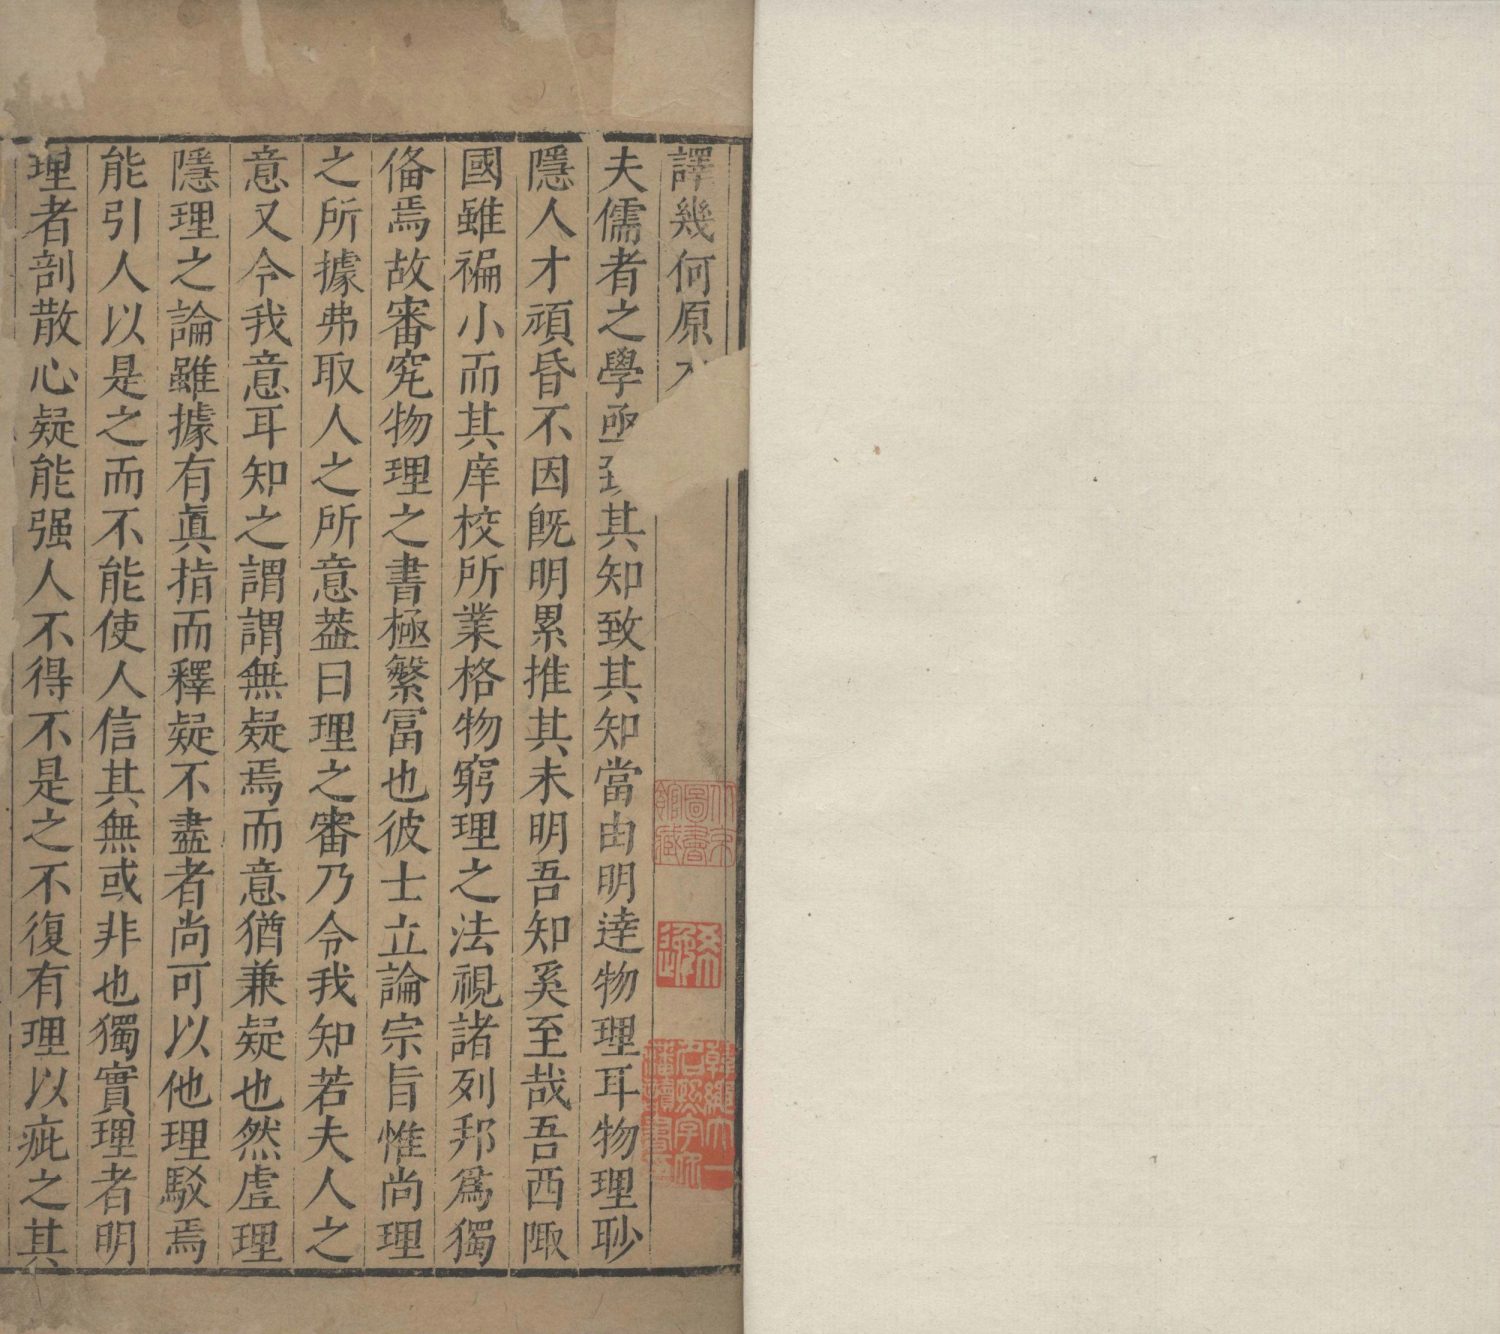 譯幾何原
夫儒者之學亟致其知致其知當由明達物理耳物理眇
隱人才頑昏不因旣明累推其未明吾知奚至哉吾西陬
國雖褊小而其庠校所業格物窮理之法視諸列邦爲獨
俻焉故審究物理之書極繁冨也彼士立論宗旨惟尚理
之所據弗取人之所意葢曰理之審乃令我知若夫人之
意又令我意耳知之謂謂無疑焉而意猶兼疑也然虛理
隱理之論雖據有眞指而釋疑不盡者尚可以他理駁焉
能引人以是之而不能使人信其無或非也獨實理者明
理者剖散心疑能强人不得不是之不復有理以疵之其
北京圖書館藏